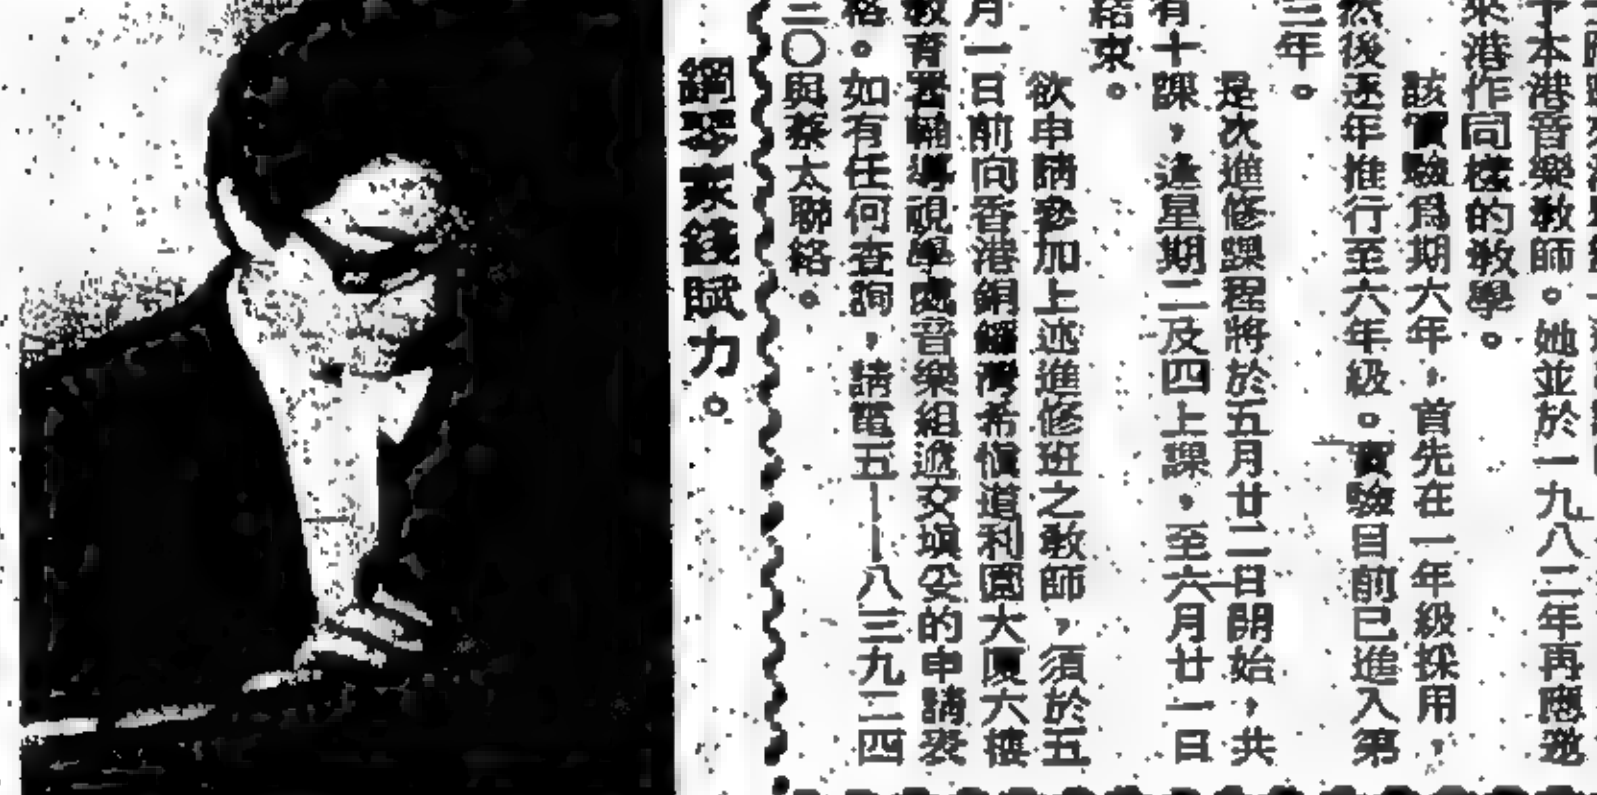 予本港音樂敎師。她並於一九八二年再應邀
來港作同樣的敎學。
該實驗爲期六年,首先在一年級採用,
然後逐年推行至六年級。實驗目前已進入第
三年。
是次進修課程將於五月廿二日開始,共
有十課,逢星期二及四上課,至六月廿一日
結束。
欲申請參加上述進修班之敎師,須於五
月一日前向香港銅鑼灣希愼道利園大廈六樓
敎育署輔導視學處音樂組遞交塡妥的申請表
格。如有任何查詢,請電五——八三九二四
三〇與蔡太聯絡。
鋼琴家錢賦力。